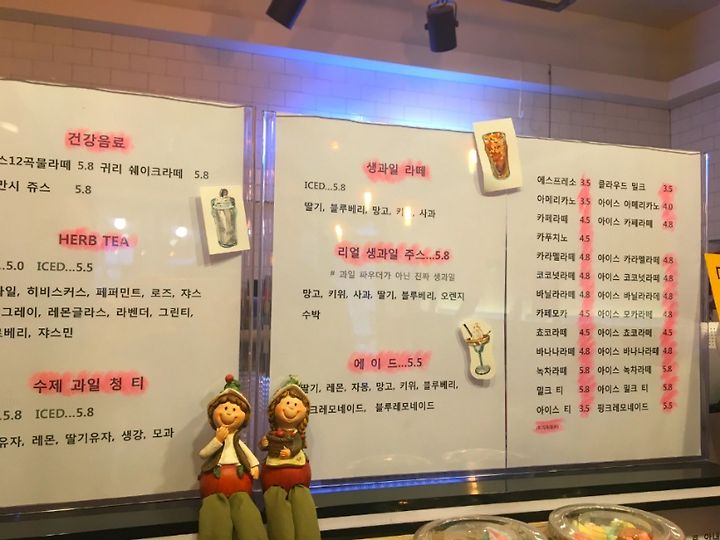 건강음료
12곡물라떼 5.8 귀리 쉐이크라떼 5.8
쥬스 5.8
HERB TEA
...5.0 ICED...5.5
히비스커스, 페퍼민트, 로즈, 쟈스
그레이, 레몬글라스, 라벤더, 그린티,
베리, 쟈스민
수제 과일 청 티
5.8 ICED...5.8
유자, 레몬, 딸기유자, 생강, 모과
생과일 라떼
ICED...5.8
딸기, 블루베리, 망고, 키위, 사과
리얼 생과일 주스...5.8
# 과일 파우더가 아닌 진짜 생과일
망고, 키위, 사과, 딸기, 블루베리, 오렌지
수박
에 이 드...5.5
딸기, 레몬, 자몽, 망고, 키위, 블루베리,
크레모네이드, 블루레모네이드
에스프레소 3.5 클라우드 밀크 3.5
아메리카노 3.5 아이스 아메리카노 4.0
카페라떼 4.5 아이스 카페라떼 4.8
카푸치노 4.5
카라멜라떼 4.8 아이스 카라멜라떼 4.8
코코넛라떼 4.8 아이스 코코넛라떼 4.8
바닐라라떼 4.8 아이스 바닐라라떼 4.8
카페모카 4.5 아이스 모카라떼 4.8
쵸코라떼 4.5 아이스 쵸코라떼 4.8
바나나라떼 4.8 아이스 바나나라떼 4.8
녹차라떼 5.8 아이스 녹차라떼 5.8
밀크 티 5.8 아이스 밀크 티 5.8
아이스 티 3.5 핑크레모네이드 5.5